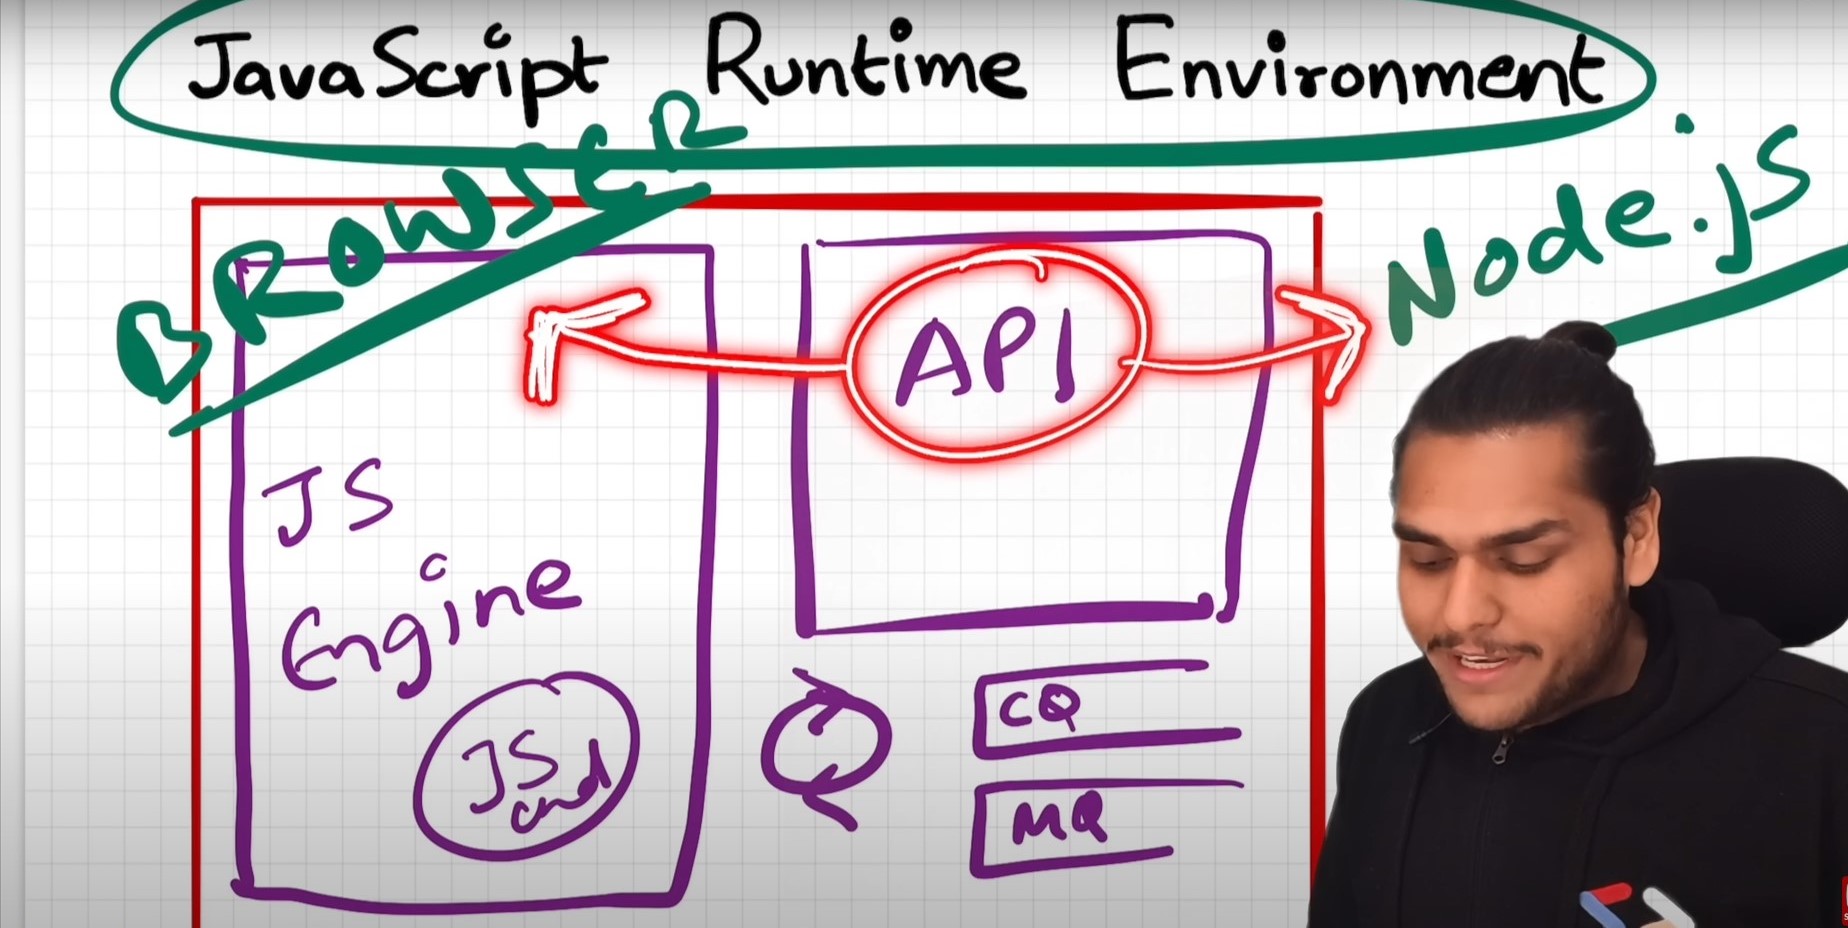 JavaScript Runtime Environment
BROWSER
Node.js
API
JS
Engine
JS
CQ
MQ